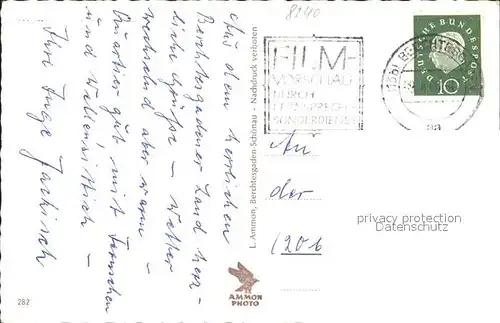 Aus dem herrlichen
Berchtesgadener Land herz-
liche Grüße – Wetter
wechselnd aber warm –
Quartier gut, mit Fernsehen
und Wellensittich –
Ihre Inge
L. Ammon, Berchtesgaden-Schönau - Nachdruck verboten
8240
FILM-
VORSCHAU
DURCH
FERNSPRECH-
SONDERDIENST
DEUTSCHE BUNDESPOST
10
(13b) BERCHTESG
An
der
(20b
privacy protection
Datenschutz
AMMON
PHOTO
282